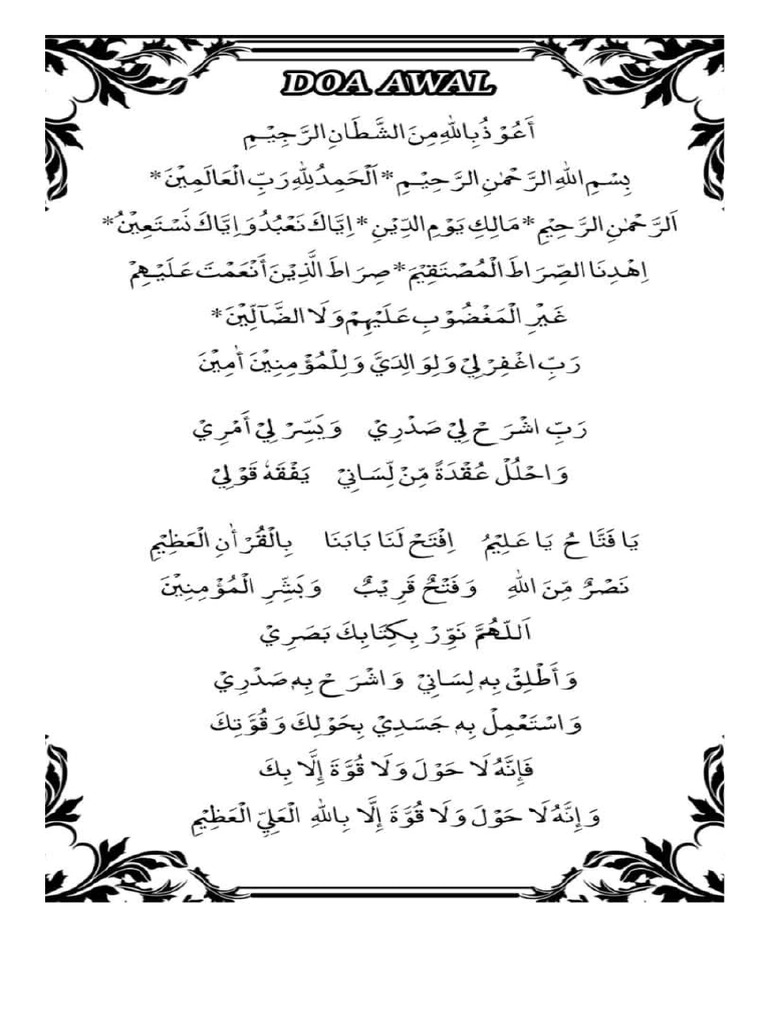 DOA AWAL
أَعُوْذُ بِاللهِ مِنَ الشَّطَانِ الرَّجِيْمِ
بِسْمِ اللهِ الرَّحْمٰنِ الرَّحِيْمِ * اَلْحَمِدُ لِلهِ رَبِّ الْعَالَمِيْنَ *
اَلرَّحْمٰنِ الرَّحِيْمِ * مَالِكِ يَوْمِ الدِّيْنِ * اِيَّاكَ نَعْبُدُ وَاِيَّاكَ نَسْتَعِيْنُ *
اِهْدِنَا الصِّرَاطَ الْمُصْتَقِيْمَ * صِرَاطَ الَّذِيْنَ أَنْعَمْتَ عَلَيْهِمْ
غَيْرِ الْمَغْضُوْبِ عَلَيْهِمْ وَلَا الضَّآلِّيْنَ *
رَبِّ اغْفِرْ لِيْ وَلِوَالِدَيَّ وَلِلْمُؤْمِنِيْنَ أٰمِيْنَ
رَبِّ اشْرَحْ لِيْ صَدْرِيْ وَيَسِّرْ لِيْ أَمْرِيْ
وَاحْلُلْ عُقْدَةً مِّنْ لِّسَانِيْ يَفْقَهُ قَوْلِيْ
يَا فَتَّاحُ يَا عَلِيْمُ اِفْتَحْ لَنَا بَابَنَا بِالْقُرْأٰنِ الْعَظِيْمِ
نَصْرٌ مِّنَ اللهِ وَفَتْحٌ قَرِيْبٌ وَبَشِّرِ الْمُؤْمِنِيْنَ
اَللّٰهُمَّ نَوِّرْ بِكِتَابِكَ بَصَرِيْ
وَأَطْلِقْ بِهِ لِسَانِيْ وَاشْرَحْ بِهِ صَدْرِيْ
وَاسْتَعْمِلْ بِهِ جَسَدِيْ بِحَوْلِكَ وَقُوَّتِكَ
فَإِنَّهُ لَا حَوْلَ وَلَا قُوَّةَ إِلَّا بِكَ
وَإِنَّهُ لَا حَوْلَ وَلَا قُوَّةَ إِلَّا بِاللهِ الْعَلِيِّ الْعَظِيْمِ